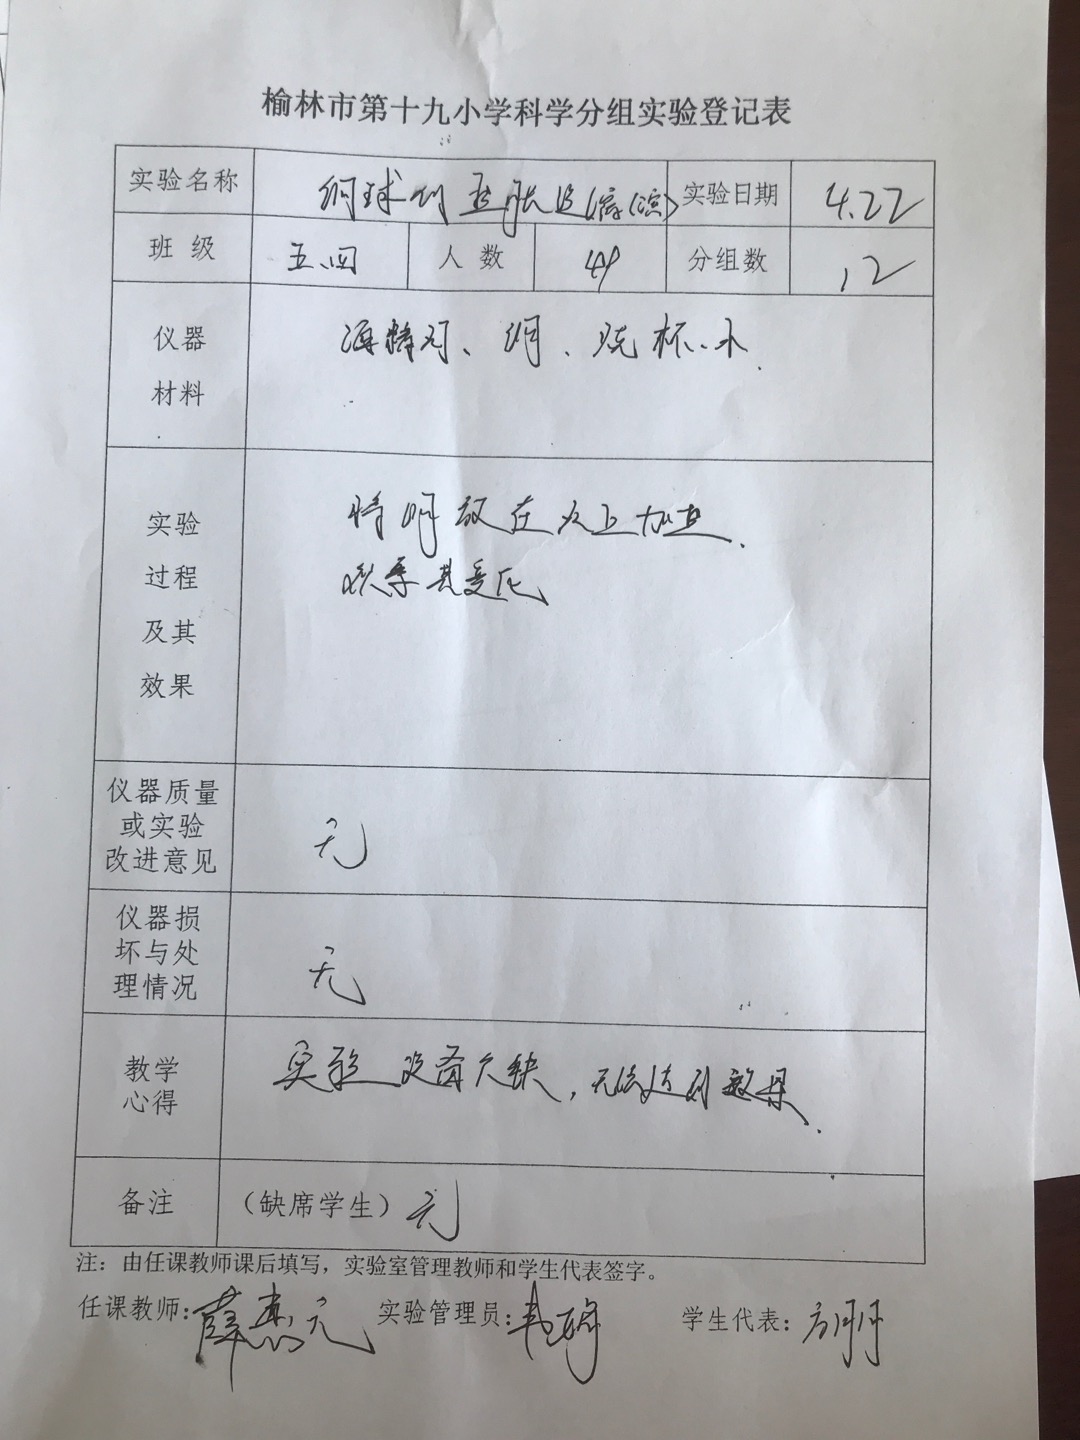 榆林市第十九小学科学分组实验登记表
实验名称 钢球的热胀 实验日期 4.22
班级 五.四 人数 49 分组数 12
仪器
材料
酒精灯、钢、烧杯、水.
实验
过程
及其
效果
将钢放在火上加热.
观察其变化
仪器质量
或实验
改进意见
无
仪器损
坏与处
理情况
无
教学
心得
实验设备欠缺,无法达到效果.
备注 (缺席学生)无
注：由任课教师课后填写，实验室管理教师和学生代表签字。
任课教师：薛 元 实验管理员： 学生代表：